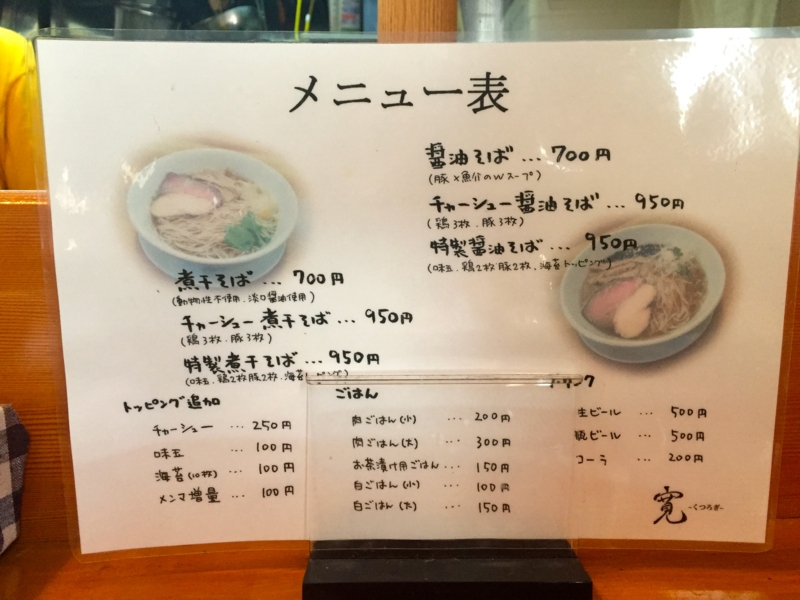 メニュー表
醤油そば … 700円
(豚×魚介のWスープ)
チャーシュー醤油そば … 950円
(鶏3枚.豚3枚)
特製醤油そば … 950円
(味玉.鶏2枚豚2枚.海苔トッピング)
煮干そば … 700円
(動物性不使用.淡口醤油使用)
チャーシュー煮干そば … 950円
(鶏3枚.豚3枚)
特製煮干そば … 950円
(味玉.鶏2枚豚2枚.海苔ピング)
トッピング追加
チャーシュー … 250円
味玉 … 100円
海苔(10枚) … 100円
メンマ増量 … 100円
ごはん
肉ごはん(小) … 200円
肉ごはん(大) … 300円
お茶漬け用ごはん … 150円
白ごはん(小) … 100円
白ごはん(大) … 150円
ドリンク
生ビール … 500円
瓶ビール … 500円
コーラ … 200円
寛 -くつろぎ-